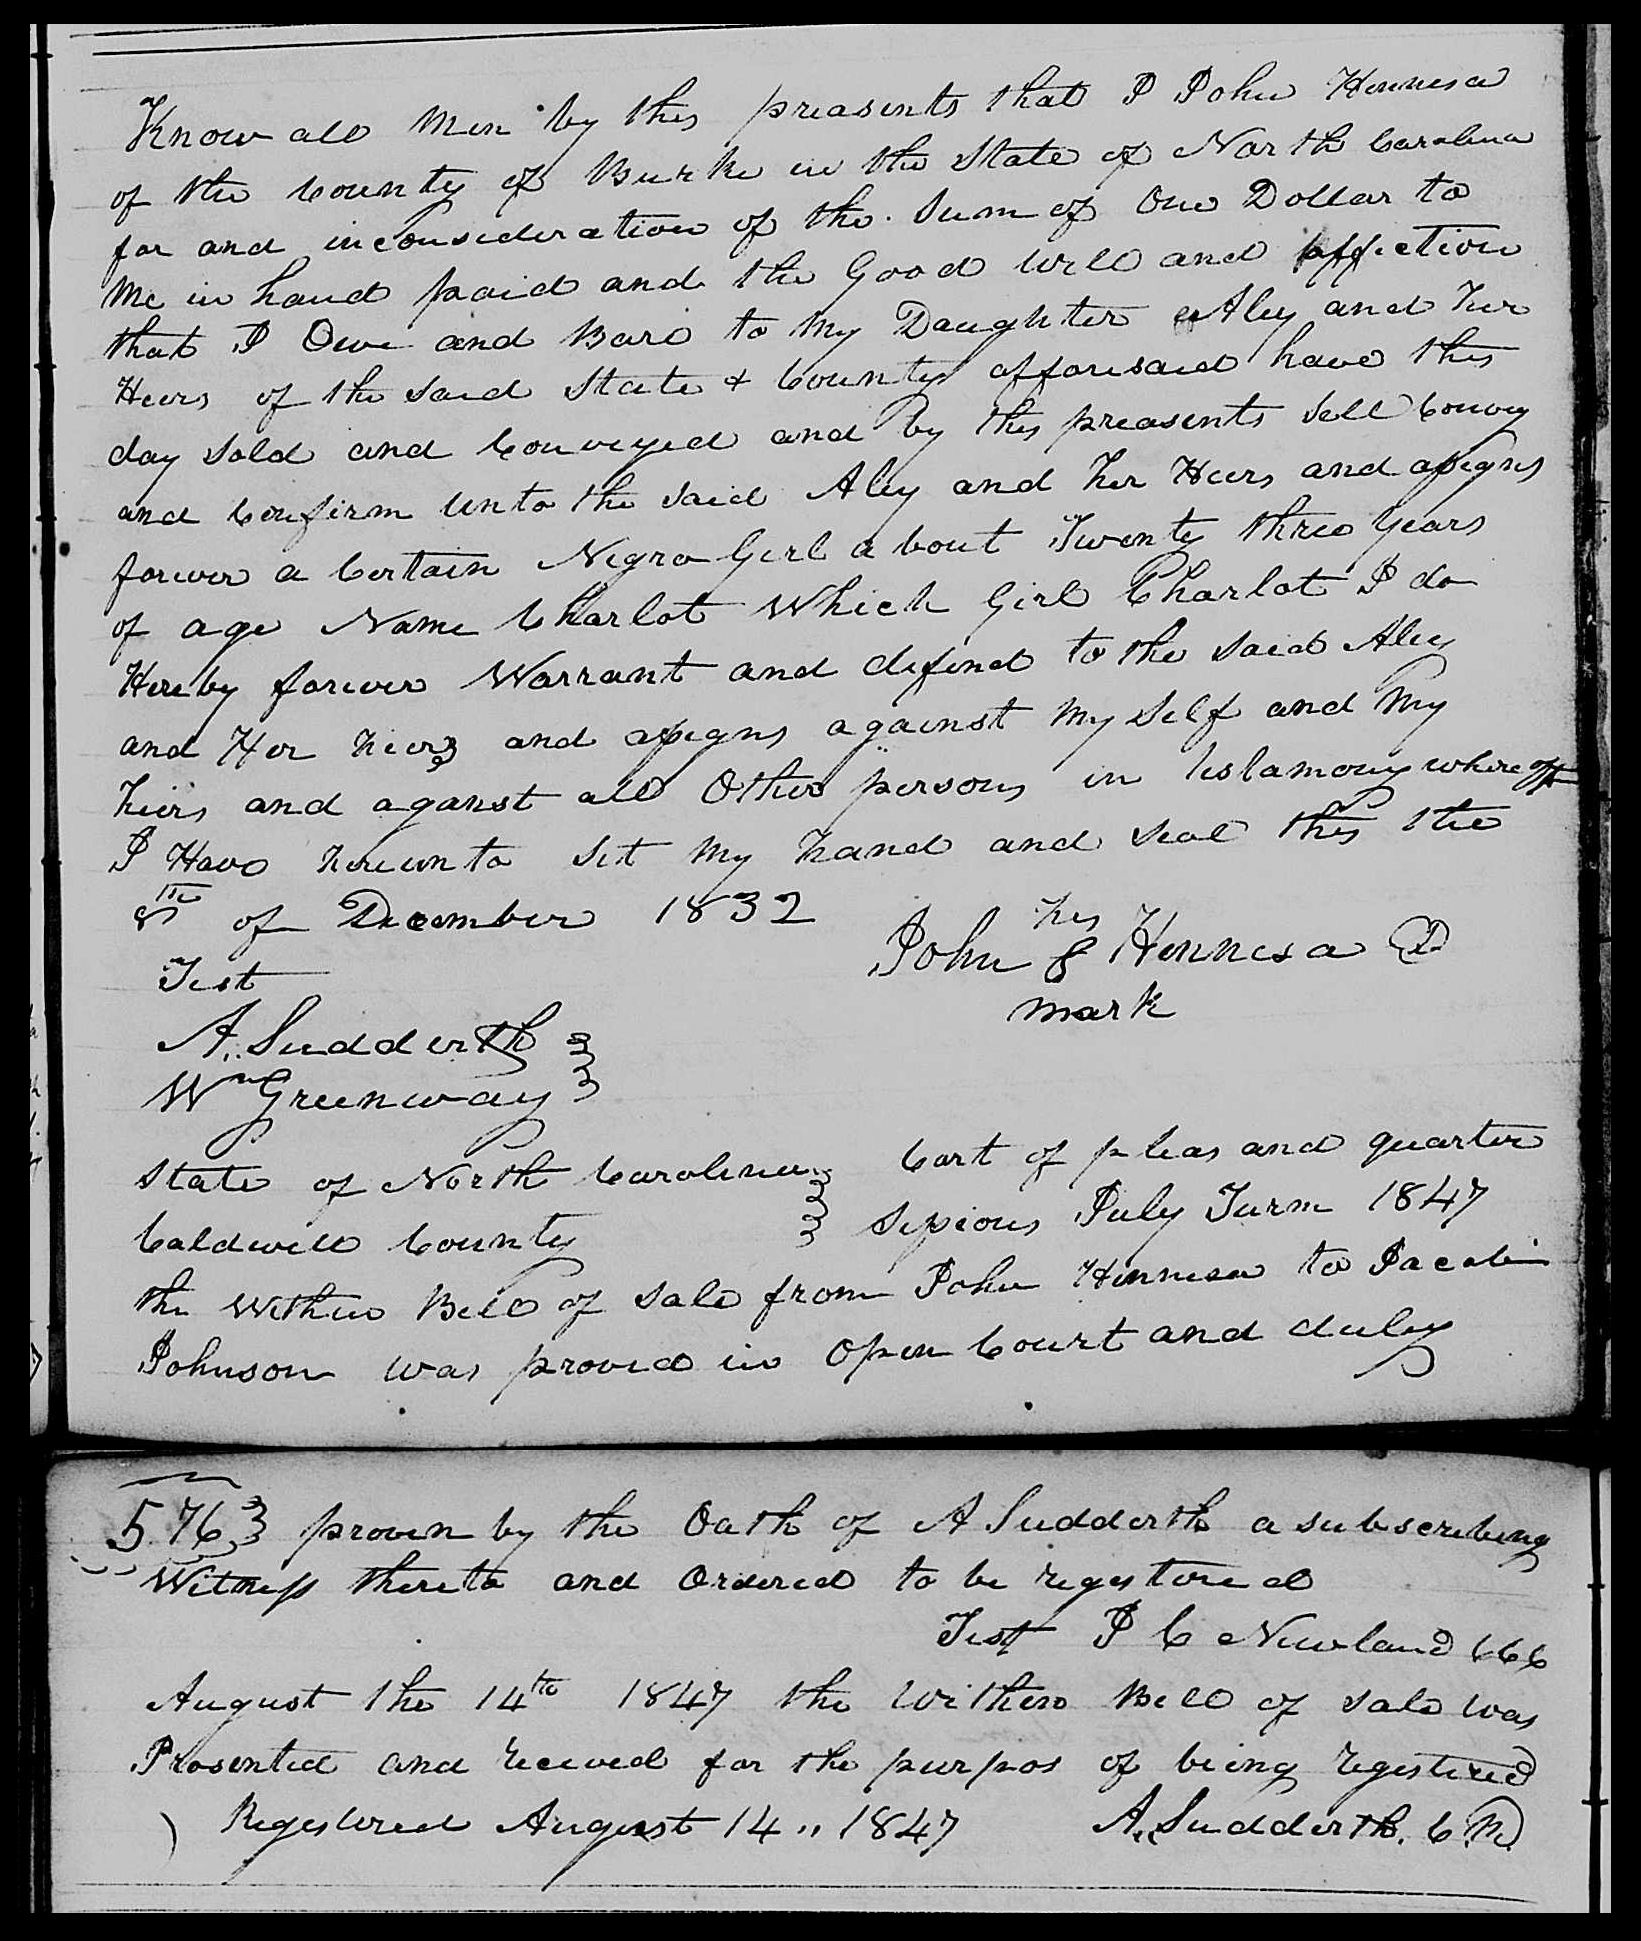 Know all Men by this preasents that I John Hennesa
of the County of Burke in the State of North Carolina
for and in Consideration of the Sum of One Dollar to
Me in hand paid and the Good Will and affection
that I Owe and Bare to My Daughter Aley and her
Heirs of the said State & County afforesaid have this
day sold and Conveyed and by this preasents sell Convey
and Confirm Unto the said Aley and her Heirs and assigns
forever a Certain Negro Girl about Twenty three years
of age Name Charlot Which Girl Charlot I do
Hereby forever Warrant and defend to the said Aley
and Her heirs and assigns against My Self and My
heirs and aganst all Other persons in Testamony whereoff
I Have hereunto Set My hand and Seal this the
8th of December 1832
his
John Hennesa
mark
Test
A. Sudderth
Wm Greenway
State of North Carolina Cort of pleas and quarter
Caldwell County Sessions July Turm 1847
the Within Bill of sale from John Hennesa to Jacob
Johnson was proved in Open Court and duley
576 proven by the Oath of A Sudderth a subscribing
Witness thereto and Ordered to be regestered
Test J C Newland CCC
August the 14th 1847 the Within Bill of sale was
Presented and received for the purpos of being regestered
Regestered August 14 " 1847 A. Sudderth. C R